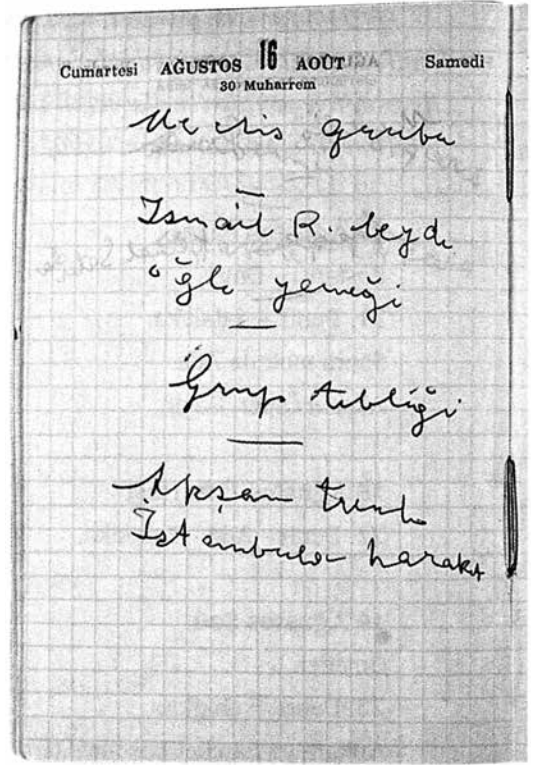 Cumartesi AĞUSTOS 16 AOÛT Samedi
30 Muharrem
Meclis grubu
Ismail R. beyde
öğle yemeği
Grup tebliği
Akşam trenle
İstanbula hareket